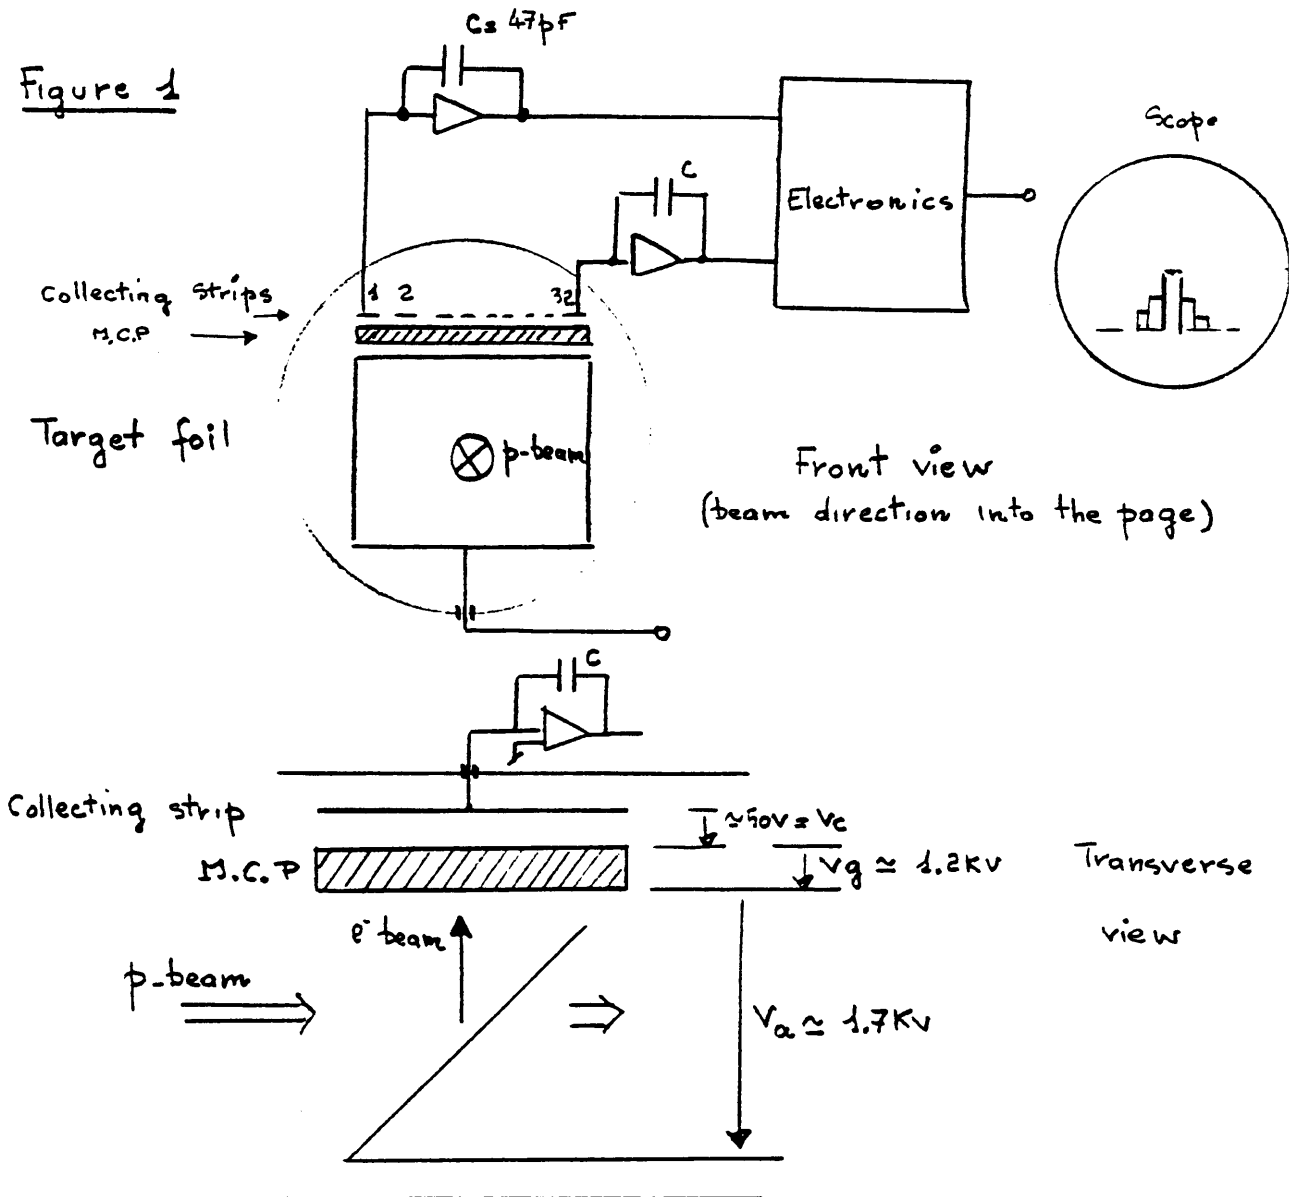 Figure 1
C= 47pF
Scope
C
Electronics
Collecting strips
1 2 32
M.C.P
Target foil
p-beam
Front view
(beam direction into the page)
C
Collecting strip
≃50V = Vc
M.C.P
Vg ≃ 1.2KV
Transverse
view
e⁻ beam
p-beam
Va ≃ 1.7KV